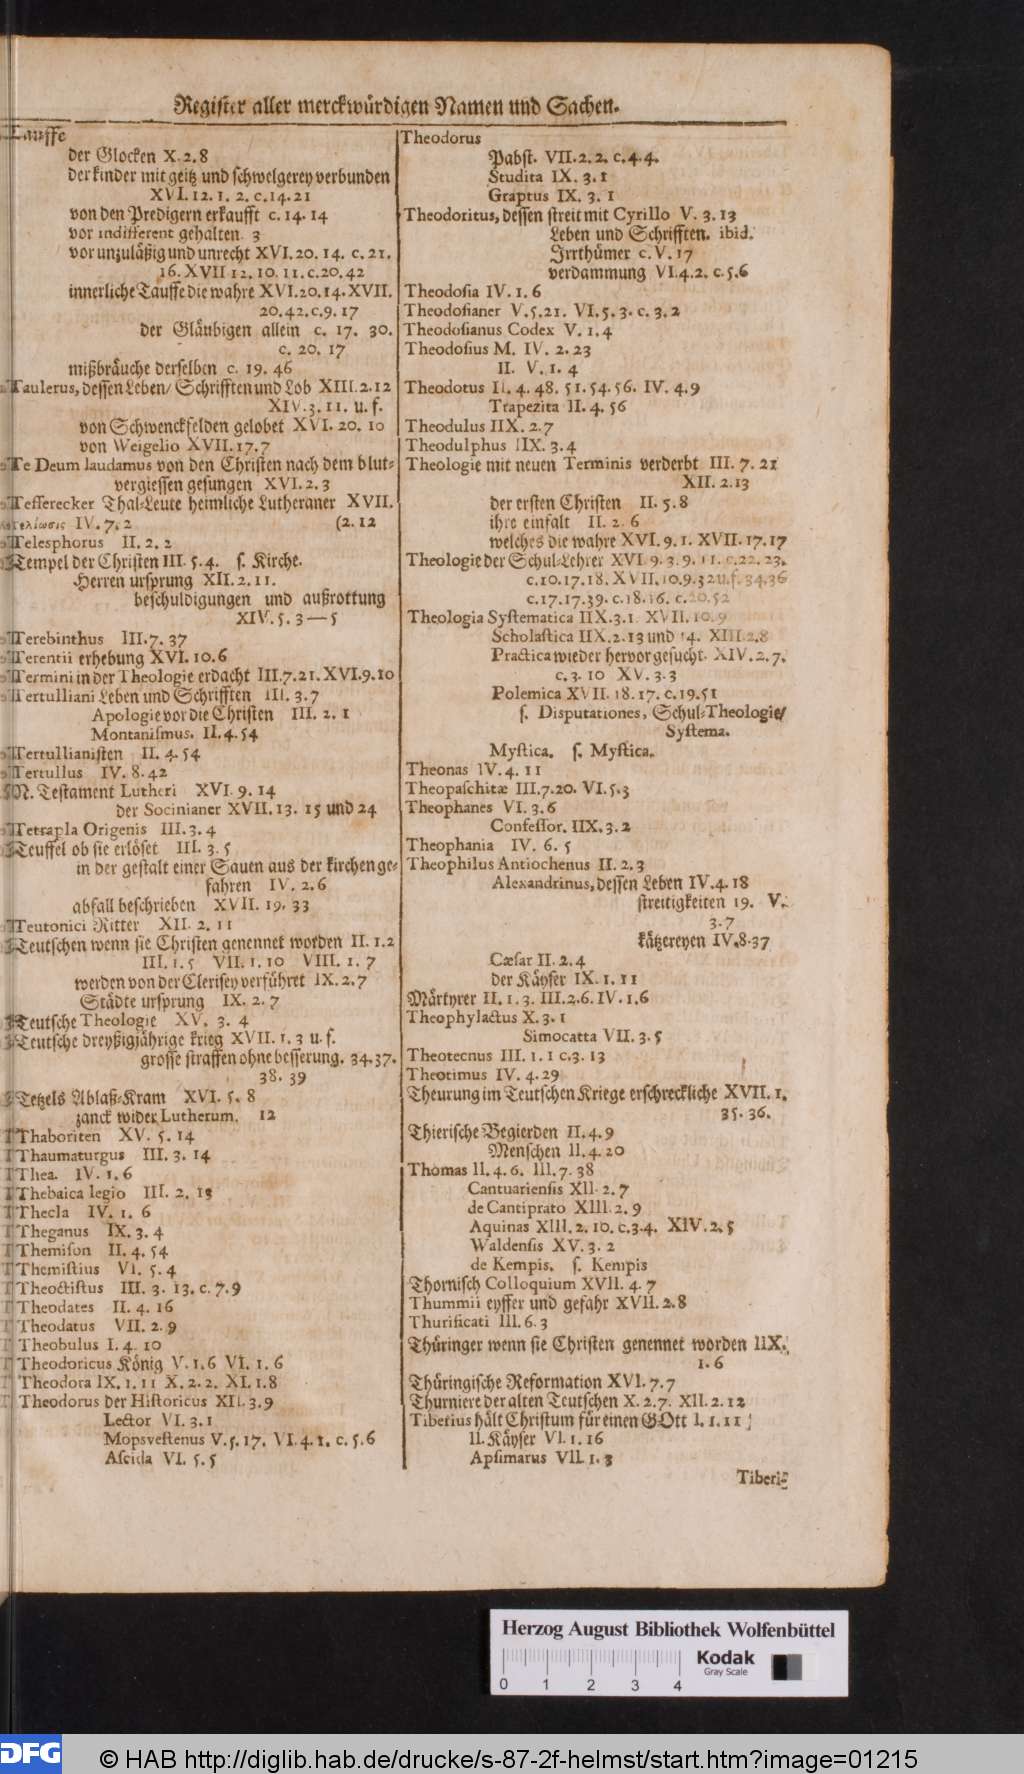 Register aller merckwürdigen Namen und Sachen.
Tauffe
der Glocken X. 2. 8
der kinder mit geitz und schwelgerey verbunden
XVI. 12. 1. 2. c. 14. 21
von den Predigern erkaufft c. 14. 14
vor indifferent gehalten. 3
vor unzuläßig und unrecht XVI. 20. 14. c. 21.
16. XVII 12. 10. 11. c. 20. 42
innerliche Tauffe die wahre XVI. 20. 14. XVII.
20. 42. c. 9. 17
der Gläubigen allein c. 17. 30.
c. 20. 17
mißbräuche derselben c. 19. 46
Taulerus, dessen Leben/ Schrifften und Lob XIII. 2. 12
XIV. 3. 11. u. f.
von Schwenckfelden gelobet XVI. 20. 10
von Weigelio XVII. 17. 7
Te Deum laudamus von den Christen nach dem blut-
vergiessen gesungen XVI. 2. 3
Tefferecker Thal-Leute heimliche Lutheraner XVII.
τελέιωσις IV. 7. 2 (2. 12
Telesphorus II. 2. 2
Tempel der Christen III. 5. 4. s. Kirche.
Herren ursprung XII. 2. 11.
beschuldigungen und außrottung
XIV. 5. 3—5
Terebinthus III. 7. 37
Terentii erhebung XVI. 10. 6
Termini in der Theologie erdacht III. 7. 21. XVI. 9. 10
Tertulliani Leben und Schrifften III. 3. 7
Apologie vor die Christen III. 2. 1
Montanismus. II. 4. 54
Tertullianisten II. 4. 54
Tertullus IV. 8. 42
N. Testament Lutheri XVI. 9. 14
der Socinianer XVII. 13. 15 und 24
Tetrapla Origenis III. 3. 4
Teuffel ob sie erlöset III. 3. 5
in der gestalt einer Sauen aus der kirchen ge-
fahren IV. 2. 6
abfall beschrieben XVII. 19. 33
Teutonici Ritter XII. 2. 11
Teutschen wenn sie Christen genennet worden II. 1. 2
III. 1. 5 VII. 1. 10 VIII. 1. 7
werden von der Clerisey verführet IX. 2. 7
Städte ursprung IX. 2. 7
Teutsche Theologie XV. 3. 4
Teutsche dreyßigjährige krieg XVII. 1. 3 u. f.
grosse straffen ohne besserung. 34. 37.
38. 39
Tetzels Ablaß-Kram XVI. 5. 8
zanck wider Lutherum. 12
Thaboriten XV. 5. 14
Thaumaturgus III. 3. 14
Thea. IV. 1. 6
Thebaica legio III. 2. 13
Thecla IV. 1. 6
Theganus IX. 3. 4
Themison II. 4. 54
Themistius VI. 5. 4
Theoctistus III. 3. 13. c. 7. 9
Theodates II. 4. 16
Theodatus VII. 2. 9
Theobulus I. 4. 10
Theodoricus König V. 1. 6 VI. 1. 6
Theodora IX. 1. 11 X. 2. 2. XI. 1. 8
Theodorus der Historicus XII. 3. 9
Lector VI. 3. 1
Mopsvestenus V. 5. 17. VI. 4. 1. c. 5. 6
Ascida VI. 5. 5
Theodorus
Pabst. VII. 2. 2. c. 4. 4.
Studita IX. 3. 1
Graptus IX. 3. 1
Theodoritus, dessen streit mit Cyrillo V. 3. 13
Leben und Schrifften. ibid.
Irrthümer c. V. 17
verdammung VI. 4. 2. c. 5. 6
Theodosia IV. 1. 6
Theodosianer V. 5. 21. VI. 5. 3. c. 3. 2
Theodosianus Codex V. 1. 4
Theodosius M. IV. 2. 23
II. V. 1. 4
Theodotus II. 4. 48. 51. 54. 56. IV. 4. 9
Trapezita II. 4. 56
Theodulus IIX. 2. 7
Theodulphus IIX. 3. 4
Theologie mit neuen Terminis verderbt III. 7. 21
XII. 2. 13
der ersten Christen II. 5. 8
ihre einfalt II. 2. 6
welches die wahre XVI. 9. 1. XVII. 17. 17
Theologie der Schul-Lehrer XVI. 9. 3. 9. 11. c. 22. 23.
c. 10. 17. 18. XVII. 10. 9. 32 u. f. 34. 36
c. 17. 17. 39. c. 18. 16. c. 20. 52
Theologia Systematica IIX. 3. 1. XVII. 10. 9
Scholastica IIX. 2. 13 und 14. XIII. 2. 8
Practica wieder hervor gesucht. XIV. 2. 7.
c. 3. 10 XV. 3. 3
Polemica XVII. 18. 17. c. 19. 51
s. Disputationes, Schul-Theologie/
Systema.
Mystica. s. Mystica.
Theonas IV. 4. 11
Theopaschitæ III. 7. 20. VI. 5. 3
Theophanes VI. 3. 6
Confessor. IIX. 3. 2
Theophania IV. 6. 5
Theophilus Antiochenus II. 2. 3
Alexandrinus, dessen Leben IV. 4. 18
streitigkeiten 19. V.
3. 7
kätzereyen IV. 8. 37
Cæsar II. 2. 4
der Käyser IX. 1. 11
Märtyrer II. 1. 3. III. 2. 6. IV. 1. 6
Theophylactus X. 3. 1
Simocatta VII. 3. 5
Theotecnus III. 1. 1 c. 3. 13
Theotimus IV. 4. 29
Theurung im Teutschen Kriege erschreckliche XVII. 1.
35. 36.
Thierische Begierden II. 4. 9
Menschen II. 4. 20
Thomas II. 4. 6. III. 7. 38
Cantuariensis XII. 2. 7
de Cantiprato XIII. 2. 9
Aquinas XIII. 2. 10. c. 3. 4. XIV. 2. 5
Waldensis XV. 3. 2
de Kempis. s. Kempis
Thornisch Colloquium XVII. 4. 7
Thummii eyffer und gefahr XVII. 2. 8
Thurificati III. 6. 3
Thüringer wenn sie Christen genennet worden IIX.
1. 6
Thüringische Reformation XVI. 7. 7
Thurniere der alten Teutschen X. 2. 7. XII. 2. 12
Tiberius hält Christum für einen GOtt I. 1. 11
II. Käyser VI. 1. 16
Apsimarus VII. 1. 3
Tiberi-
Herzog August Bibliothek Wolfenbüttel
Kodak
Gray Scale
0 1 2 3 4
DFG © HAB http://diglib.hab.de/drucke/s-87-2f-helmst/start.htm?image=01215